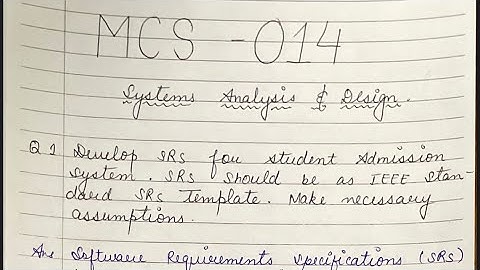 MCS - 014
Systems Analysis & Design.
Q 1 Develop SRS for Student Admission
System. SRS should be as IEEE Stan-
dard SRS Template. Make necessary
assumptions.
Ans Software Requirements Specifications (SRS)